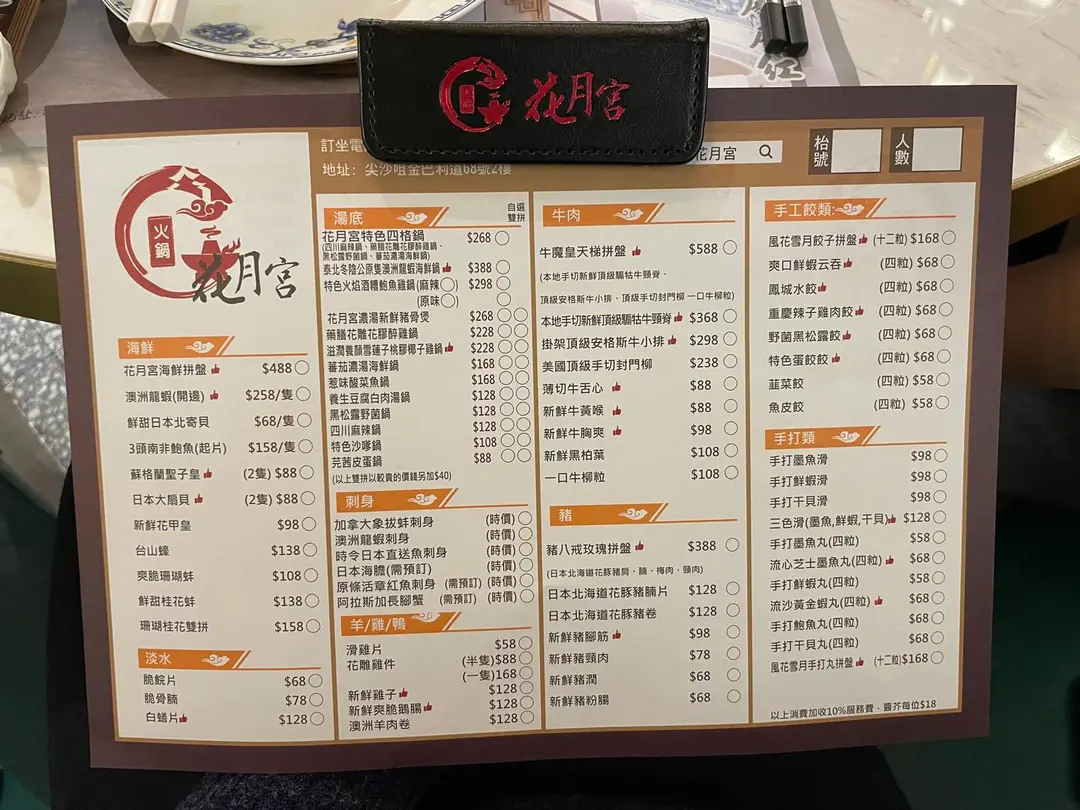 花月宮
訂坐電
地址：尖沙咀金巴利道68號2樓
花月宮
枱號
人數
火鍋
花月宮
海鮮
花月宮海鮮拼盤 $488
澳洲龍蝦(開邊) $258/隻
鮮甜日本北寄貝 $68/隻
3頭南非鮑魚(起片) $158/隻
蘇格蘭聖子皇 (2隻) $88
日本大扇貝 (2隻) $88
新鮮花甲皇 $98
台山蠔 $138
爽脆珊瑚蚌 $108
鮮甜桂花蚌 $138
珊瑚桂花雙拼 $158
淡水
脆鯇片 $68
脆骨腩 $78
白蟮片 $128
湯底
自選雙拼
花月宮特色四格鍋 $268
(四川麻辣鍋、藥膳花雕花膠醉雞鍋、
黑松露野菌鍋、蕃茄濃湯海鮮鍋)
泰北冬陰公原隻澳洲龍蝦海鮮鍋 $388
特色火焰酒糟鮑魚雞鍋 (麻辣) $298
(原味)
花月宮濃湯新鮮豬骨煲 $268
藥膳花雕花膠醉雞鍋 $228
滋潤養顏雪蓮子桃膠椰子雞鍋 $228
蕃茄濃湯海鮮鍋 $168
惹味酸菜魚鍋 $168
養生豆腐白肉湯鍋 $128
黑松露野菌鍋 $128
四川麻辣鍋 $128
特色沙嗲鍋 $108
芫茜皮蛋鍋 $88
(以上雙拼以較貴的價錢另加$40)
刺身
加拿大象拔蚌刺身 (時價)
澳洲龍蝦刺身 (時價)
時令日本直送魚刺身 (時價)
日本海膽(需預訂) (時價)
原條活章紅魚刺身 (需預訂) (時價)
阿拉斯加長腳蟹 (需預訂) (時價)
羊/雞/鴨
滑雞片 $58
花雕雞件 (半隻)$88
(一隻)168
新鮮雞子 $128
新鮮爽脆鵝腸 $128
澳洲羊肉卷 $128
牛肉
牛魔皇天梯拼盤 $588
(本地手切新鮮頂級騸牯牛頸脊、
頂級安格斯牛小排、頂級手切封門柳 一口牛柳粒)
本地手切新鮮頂級騸牯牛頸脊 $368
掛架頂級安格斯牛小排 $298
美國頂級手切封門柳 $238
薄切牛舌心 $88
新鮮牛黃喉 $88
新鮮牛胸爽 $98
新鮮黑柏葉 $108
一口牛柳粒 $108
豬
豬八戒玫瑰拼盤 $388
(日本北海道花豚豬肩、腩、梅肉、頸肉)
日本北海道花豚豬腩片 $128
日本北海道花豚豬卷 $128
新鮮豬腳筋 $98
新鮮豬頸肉 $78
新鮮豬潤 $68
新鮮豬粉腸 $68
手工餃類:
風花雪月餃子拼盤 (十二粒) $168
爽口鮮蝦云吞 (四粒) $68
鳳城水餃 (四粒) $68
重慶辣子雞肉餃 (四粒) $68
野菌黑松露餃 (四粒) $68
特色蛋餃餃 (四粒) $68
韮菜餃 (四粒) $58
魚皮餃 (四粒) $58
手打類
手打墨魚滑 $98
手打鮮蝦滑 $98
手打干貝滑 $98
三色滑(墨魚,鮮蝦,干貝) $128
手打墨魚丸(四粒) $58
流心芝士墨魚丸(四粒) $68
手打鮮蝦丸(四粒) $58
流沙黃金蝦丸(四粒) $68
手打鮑魚丸(四粒) $68
手打干貝丸(四粒) $68
風花雪月手打丸拼盤 (十二粒)$168
以上消費加收10%服務費、醬芥每位$18